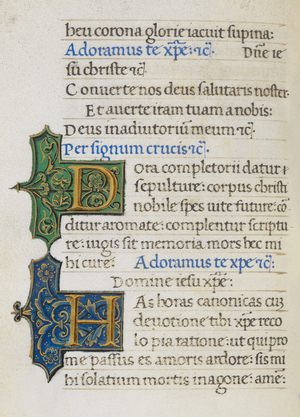 heu corona glorie iacuit supina:
Adoramus te xp̄e: ⁊c̄. Dn̄e ie
su christe ⁊c̄.
Conuerte nos deus salutaris noster.
Et auerte iram tuam a nobis:
Deus in adiutoriū meum ⁊c̄.
Per signum crucis ⁊c̄:
Hora completorii datur
sepulture: corpus christi
nobile spes uite future: cō
ditur aromate: complentur scriptu
re: iugis sit memoria mors hec mi
hi cure: Adoramus te xp̄e ⁊c̄:
Domine iesu xp̄e:
Has horas canonicas cuȝ
deuotione tibi xp̄e reco
lo pia ratione: ut qui pro
me passus es amoris ardore: sis mi
hi solatium mortis in agone: amē: